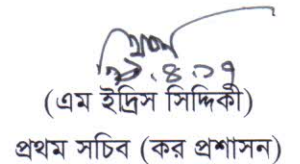 (এম ইদ্রিস সিদ্দিকী)
প্রথম সচিব (কর প্রশাসন)